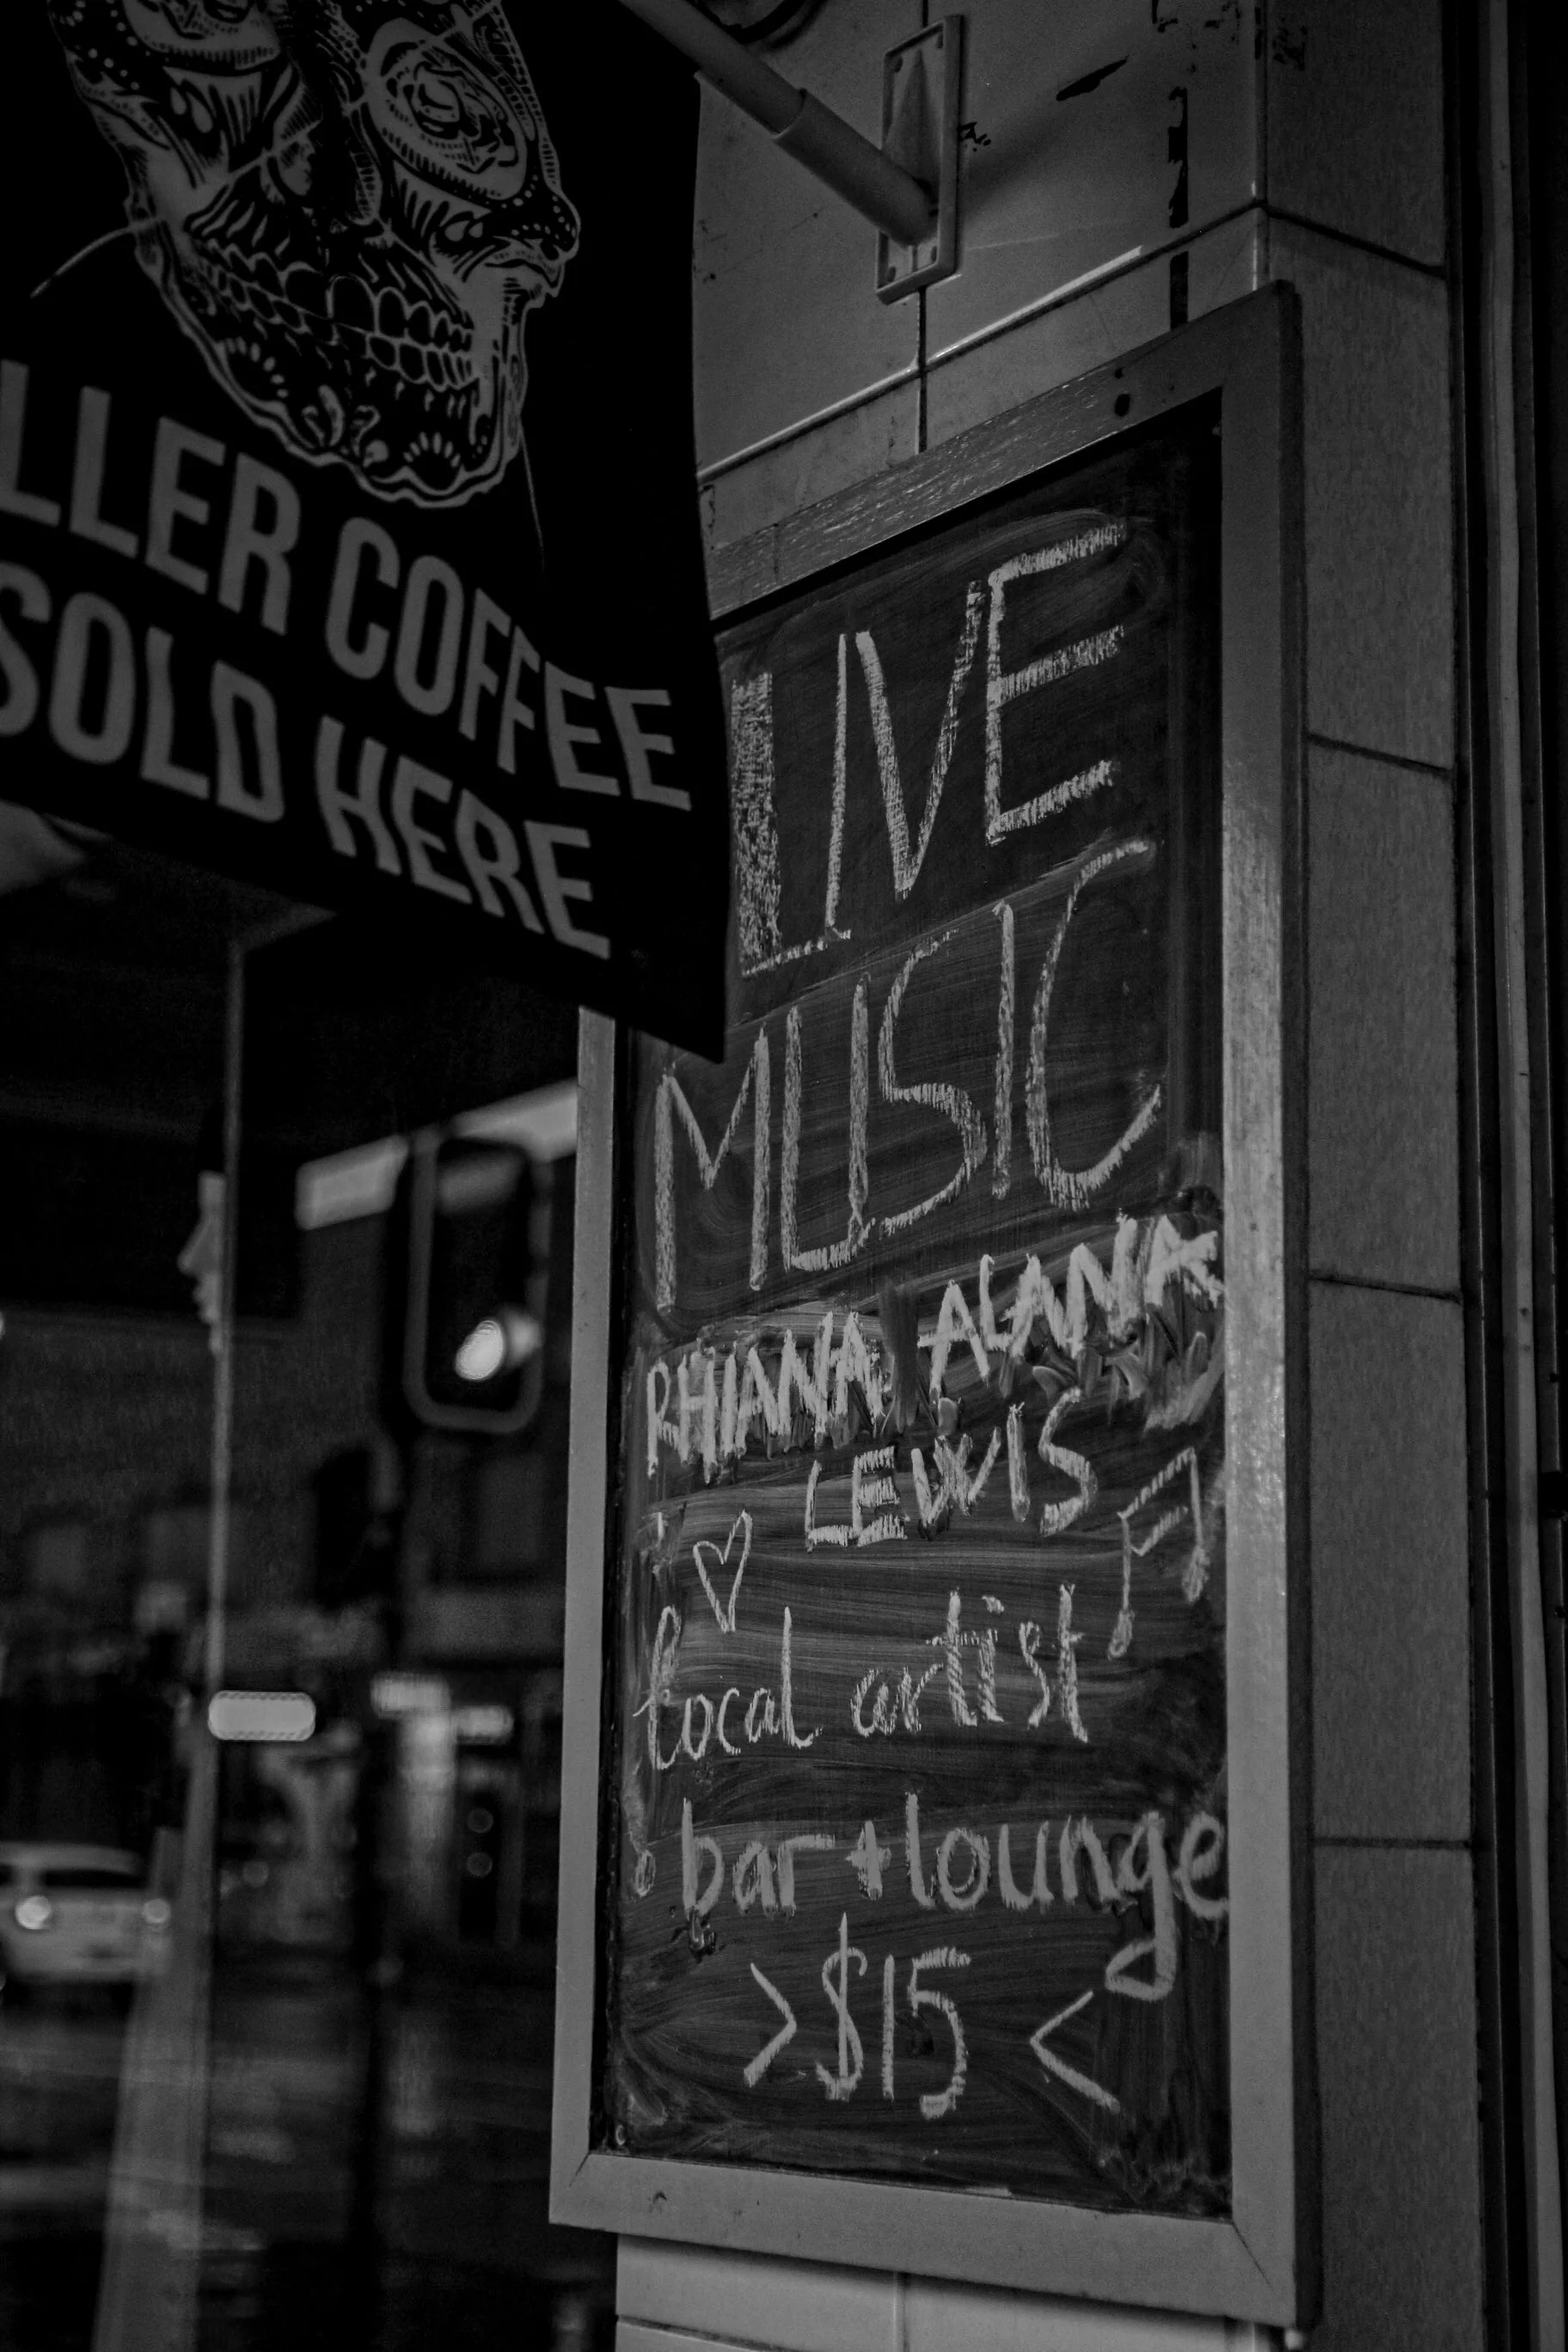 LLER COFFEE
SOLD HERE
LIVE
MUSIC
RHIANA ALANA
LEWIS
local artist
bar + lounge
>$15<